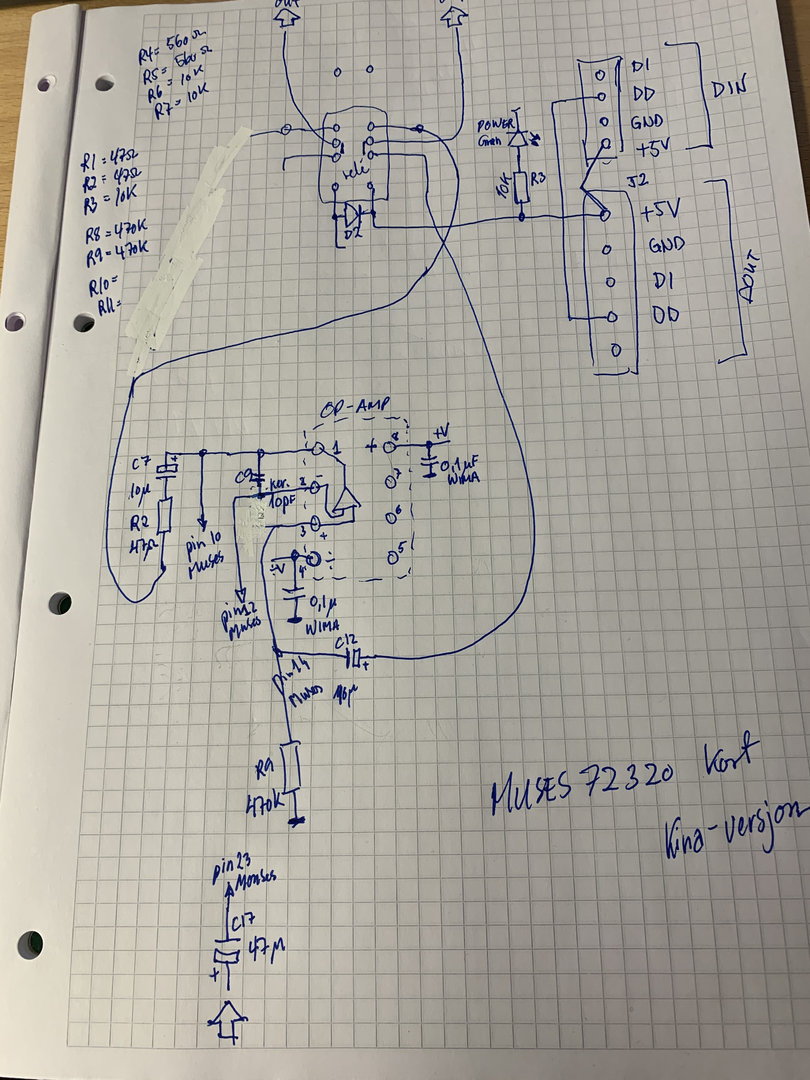 out
R4= 560Ω
R5= 560Ω
R6= 10K
R7= 10K
R1= 47Ω
R2= 47Ω
R3= 10K
R8= 470K
R9= 470K
R10=
R11=
relé
D2
POWER
Green
10K
R3
DI
DD
GND
+5V
DIN
J2
+5V
GND
DI
DD
AOUT
OP-AMP
C7
+
10µ
R2
47Ω
pin 10
Muses
C9
ker.
10pF
pin12
Muses
1
2
-
3
+
4
÷
÷V
+ 8
7
6
5
+V
0,1µF
WIMA
0,1µ
WIMA
C12
+
10µ
pin14
Muses
R9
470K
MUSES 72320 Kort
Kina-versjon
pin23
Mouses
C17
47µ
+